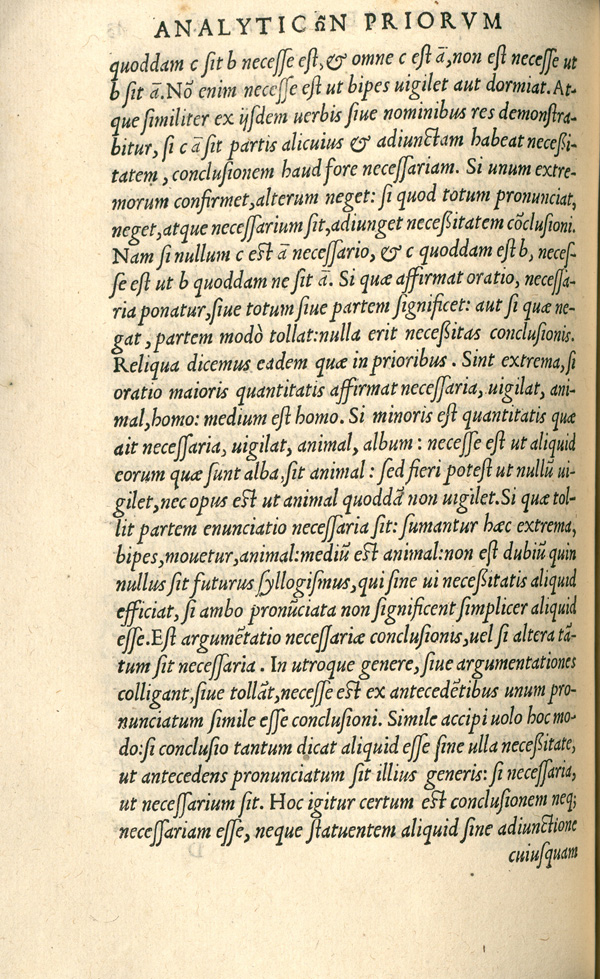 ANALYTICωN PRIORVM
quoddam c ſit b neceſſe eſt, & omne c eſt ā, non eſt neceſſe ut
b ſit ā. Nō enim neceſſe eſt ut bipes uigilet aut dormiat. At-
que ſimiliter ex ijſdem uerbis ſiue nominibus res demonſtra-
bitur, ſi c ā ſit partis alicuius & adiunctam habeat neceßi-
tatem, concluſionem haud fore neceſſariam. Si unum extre-
morum confirmet, alterum neget: ſi quod totum pronunciat,
neget, atque neceſſarium ſit, adiunget neceßitatem cōcluſioni.
Nam ſi nullum c eſt ā neceſſario, & c quoddam eſt b, neceſ-
ſe eſt ut b quoddam ne ſit ā. Si quæ affirmat oratio, neceſſa-
ria ponatur, ſiue totum ſiue partem ſignificet: aut ſi quæ ne-
gat, partem modò tollat: nulla erit neceßitas concluſionis.
Reliqua dicemus eadem quæ in prioribus. Sint extrema, ſi
oratio maioris quantitatis affirmat neceſſaria, uigilat, ani-
mal, homo: medium eſt homo. Si minoris eſt quantitatis quæ
ait neceſſaria, uigilat, animal, album: neceſſe eſt ut aliquid
eorum quæ ſunt alba, ſit animal: ſed fieri poteſt ut nullū ui-
gilet, nec opus eſt ut animal quoddā non uigilet. Si quæ tol-
lit partem enunciatio neceſſaria ſit: ſumantur hæc extrema,
bipes, mouetur, animal: mediū eſt animal: non eſt dubiū quin
nullus ſit futurus ſyllogiſmus, qui ſine ui neceßitatis aliquid
efficiat, ſi ambo pronūciata non ſignificent ſimplicer aliquid
eſſe. Eſt argumētatio neceſſariæ concluſionis, uel ſi altera tā-
tum ſit neceſſaria. In utroque genere, ſiue argumentationes
colligant, ſiue tollāt, neceſſe eſt ex antecedētibus unum pro-
nunciatum ſimile eſſe concluſioni. Simile accipi uolo hoc mo-
do: ſi concluſio tantum dicat aliquid eſſe ſine ulla neceßitate,
ut antecedens pronunciatum ſit illius generis: ſi neceſſaria,
ut neceſſarium ſit. Hoc igitur certum eſt concluſionem neq;
neceſſariam eſſe, neque ſtatuentem aliquid ſine adiunctione
cuiuſquam